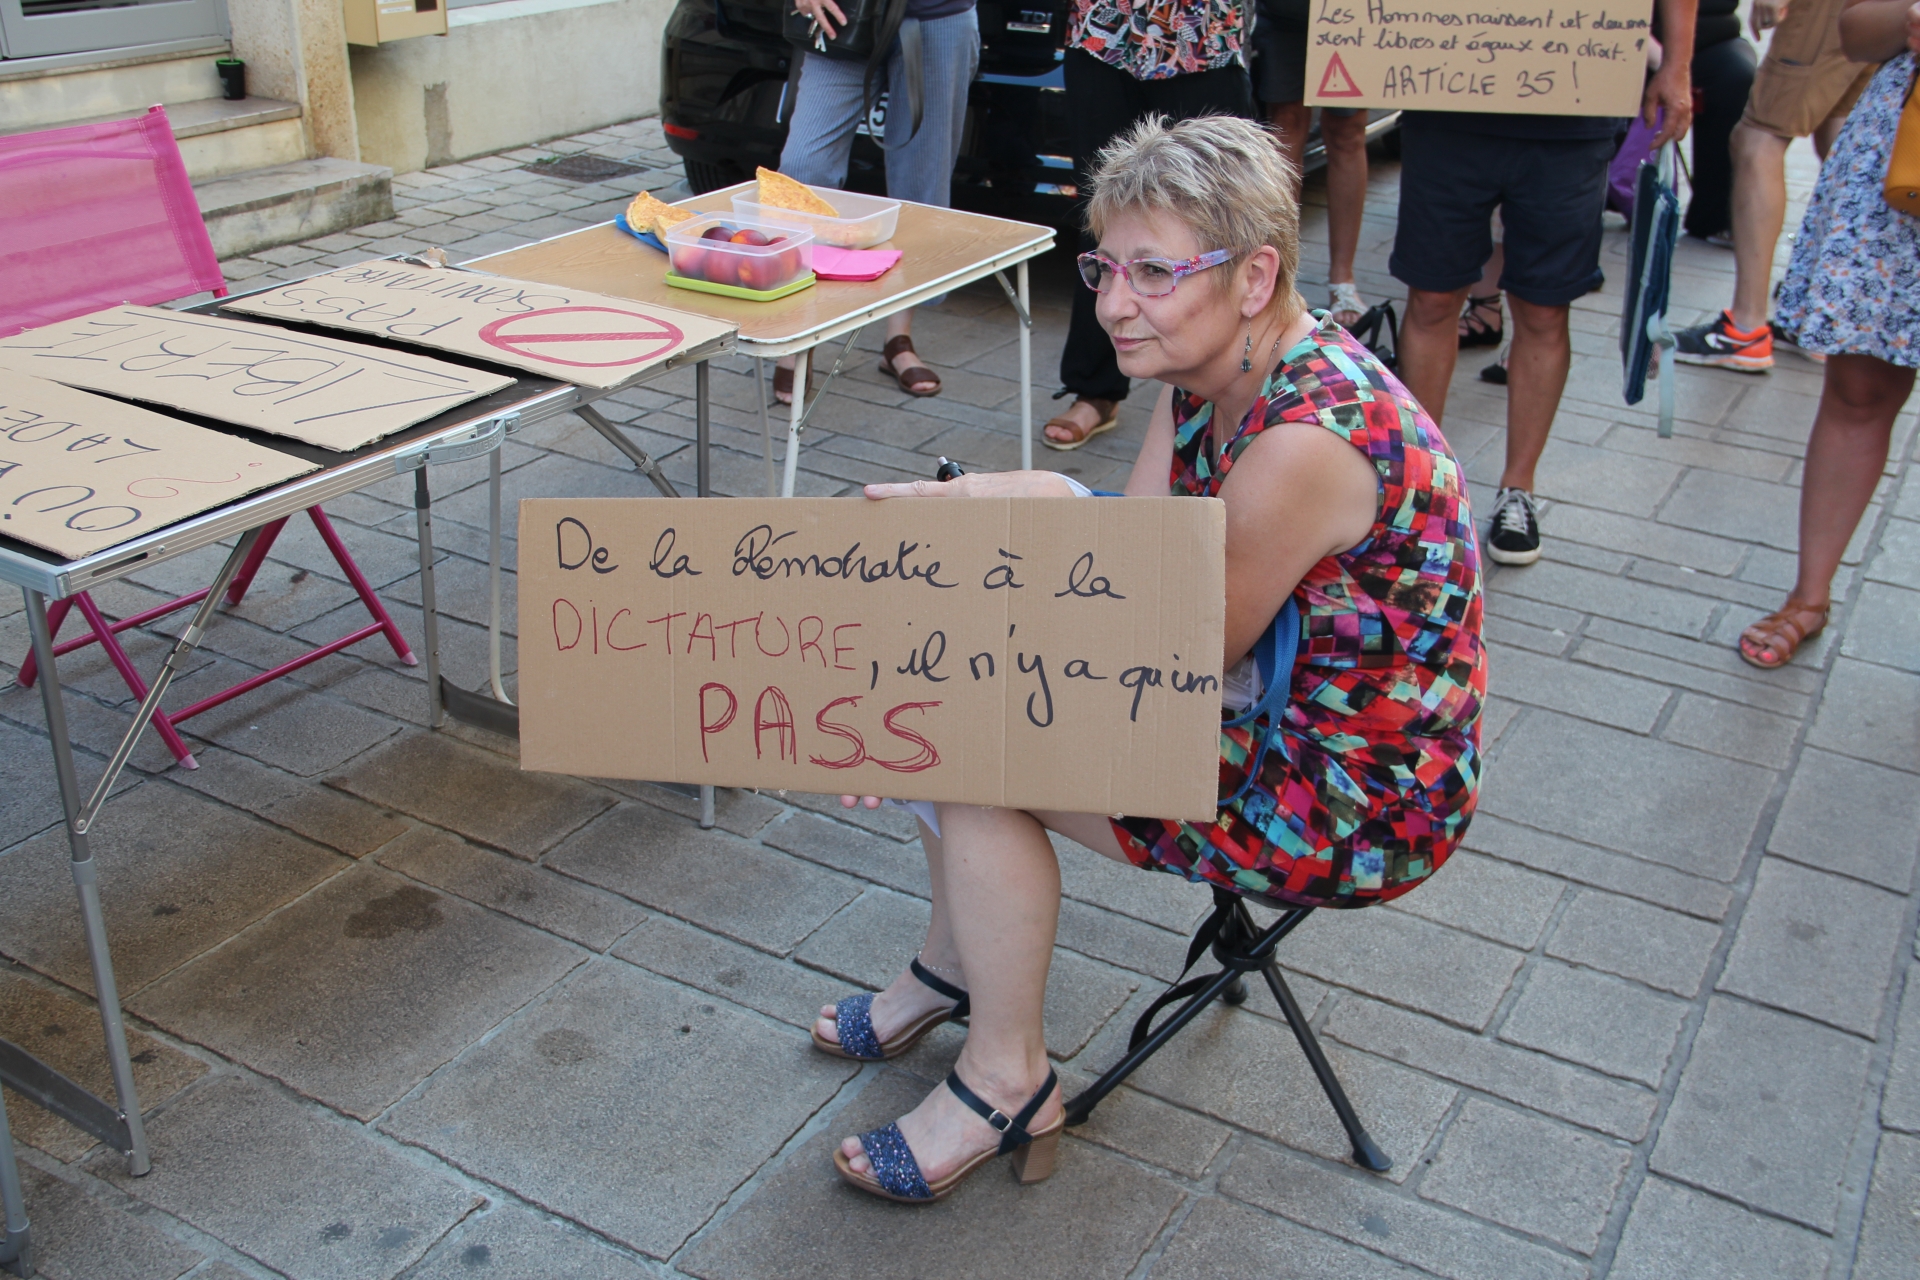 Les Hommes naissent et demeu
rent libres et égaux en droit.
ARTICLE 35 !
TDI
PASS
SANITAIRE
LIBERTÉ
OÙ
LA DE
?
De la Démokratie à la
DICTATURE, il n'y a qu'un
PASS